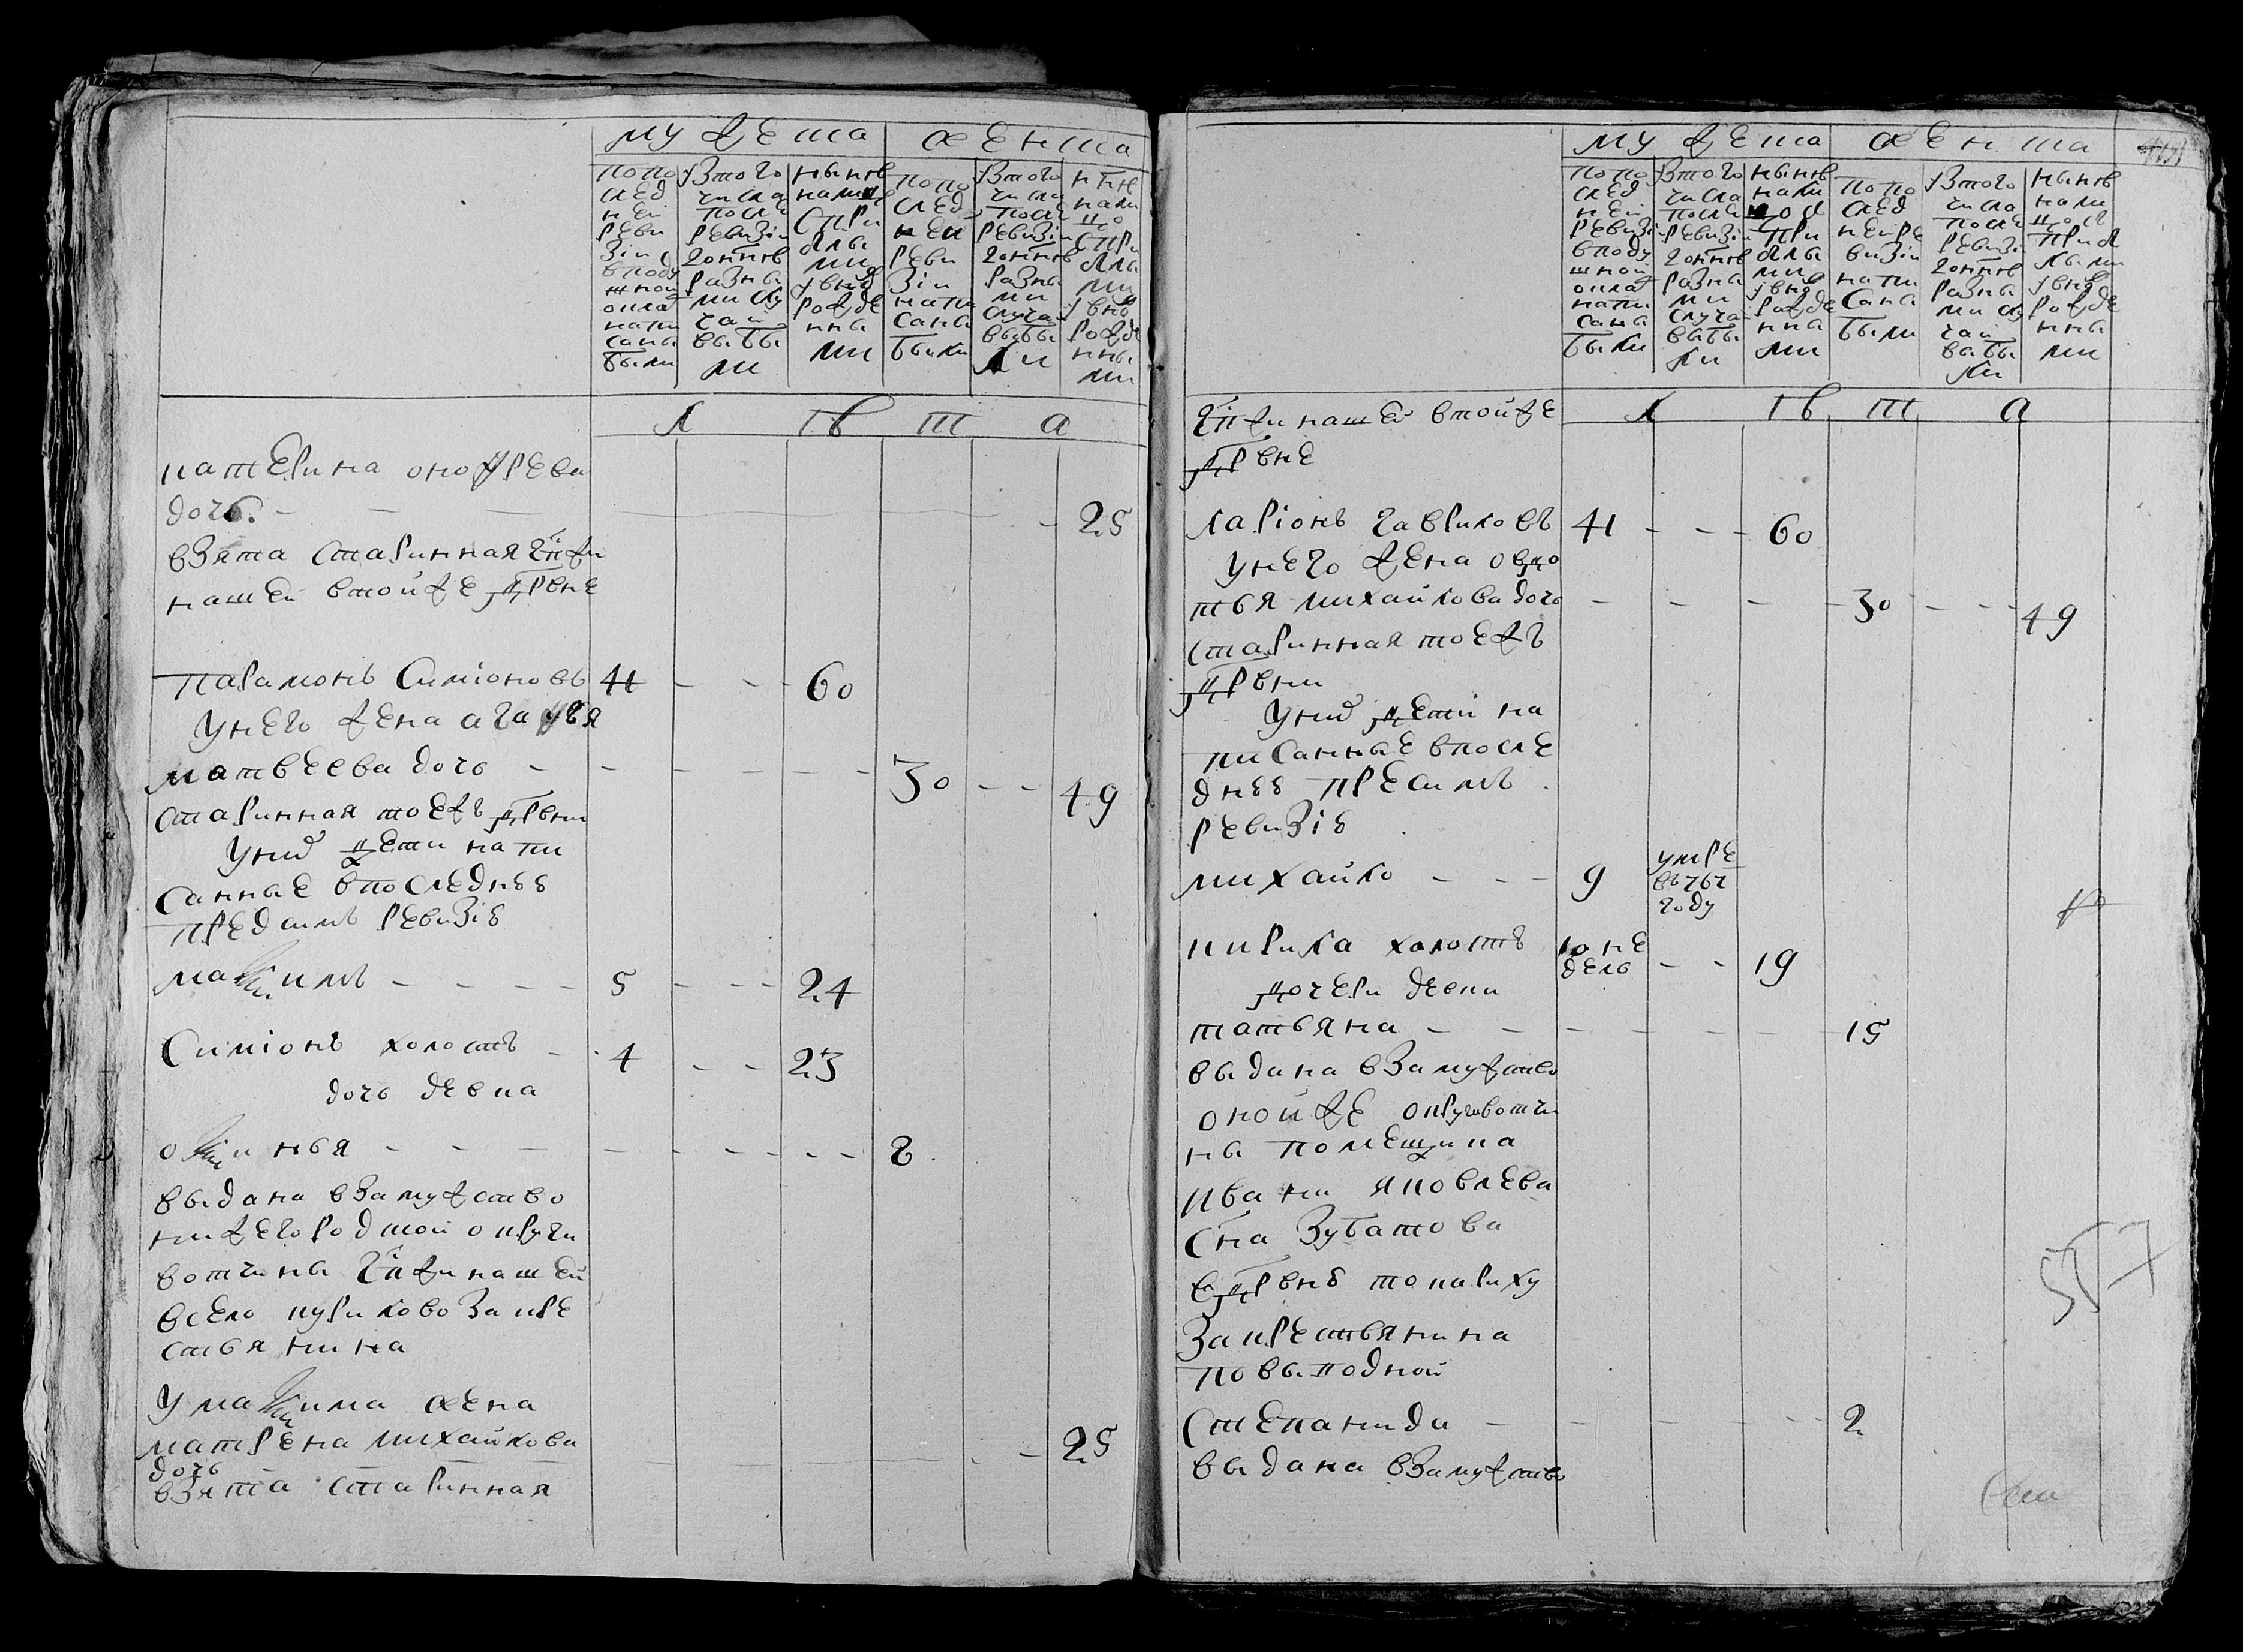 мужеска
женска
попо
след
неи
реви
зiи
вподу
шной
окла
напи
саны
были
узтого
числа
после
ревизiи
доннѣ
разны
ми слу
чаи
выбы
ли
нынѣ
налицо
Спри
былы
ми
увнов
рожде
нны
ми
попо
след
неи
реви
зiи
напи
саны
были
узтого
числа
после
ревизiи
доннѣ
разны
ми
случаи
выбы
ли
ннѣ
нали
цо
Спри
былы
ми
увнов
рожде
нны
ми
л ѣ т а
катерина оноѳрева
дочь - - - 25
взята старинная гпжи
нашеи втойже дрвне
парамонъ Симiоновъ 41 - - 60
унего жена агаѳья
матвеева дочь - - - 30 - - 49
старинная тоежъ дрвни
уних дети напи
санные впоследнѣѣ
предсимъ ревизiѣ
маѯимъ - - - 5 - - 24
Симiонъ холостъ - 4 - - 23
дочь девка
оѯинья - - - 2
выдана взамужство
нижегородской округи
вотчины гпжи нашеи
всело куриково закре
стьянина
У маѯима жена
матрена михайлова
дочь - - - 25
взята старинная
мужеска
женска
попо
след
неи
ревизiи
вподу
шной
оклад
напи
саны
были
узтого
числа
после
ревизiи
доннѣ
разны
ми
случаи
выбы
ли
нынѣ
нали
цо с
при
былы
ми
увнов
рожде
нны
ми
попо
след
неире
визiи
напи
саны
были
узтого
числа
после
ревизiи
доннѣ
разны
ми слу
чаи
выбы
ли
нынѣ
нали
цо с
приб
ылыми
увнов
рожде
нны
ми
л ѣ т а
гпжи нашеи втойже
дрвне
ларiонъ гавриловъ 41 - - 60
унего жена овдо
тья михайлова дочь - - - 30 - - 49
старинная тоежъ
дрвни
уних дети на
писанные впосле
днѣѣ пресимъ
ревизiѣ
михайло - - - 9
умре
въ 767
году
кирила холостъ 10 не
дель - - 19
дочери девки
татьяна - - - 15
выдана взамужство
онойже округивотчи
ны помещика
ивана яковлева
Сна Зубатова
вдрвнѣ топариху
закрестьянина
повыводной
Степанида - - - 2
выдана взамужство
557